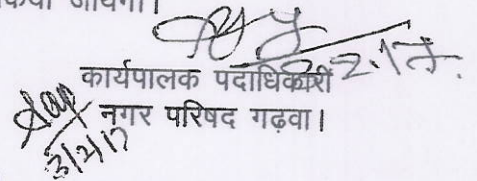 किया जायेगा।
कार्यपालक पदाधिकारी
नगर परिषद गढ़वा।
3/2/17